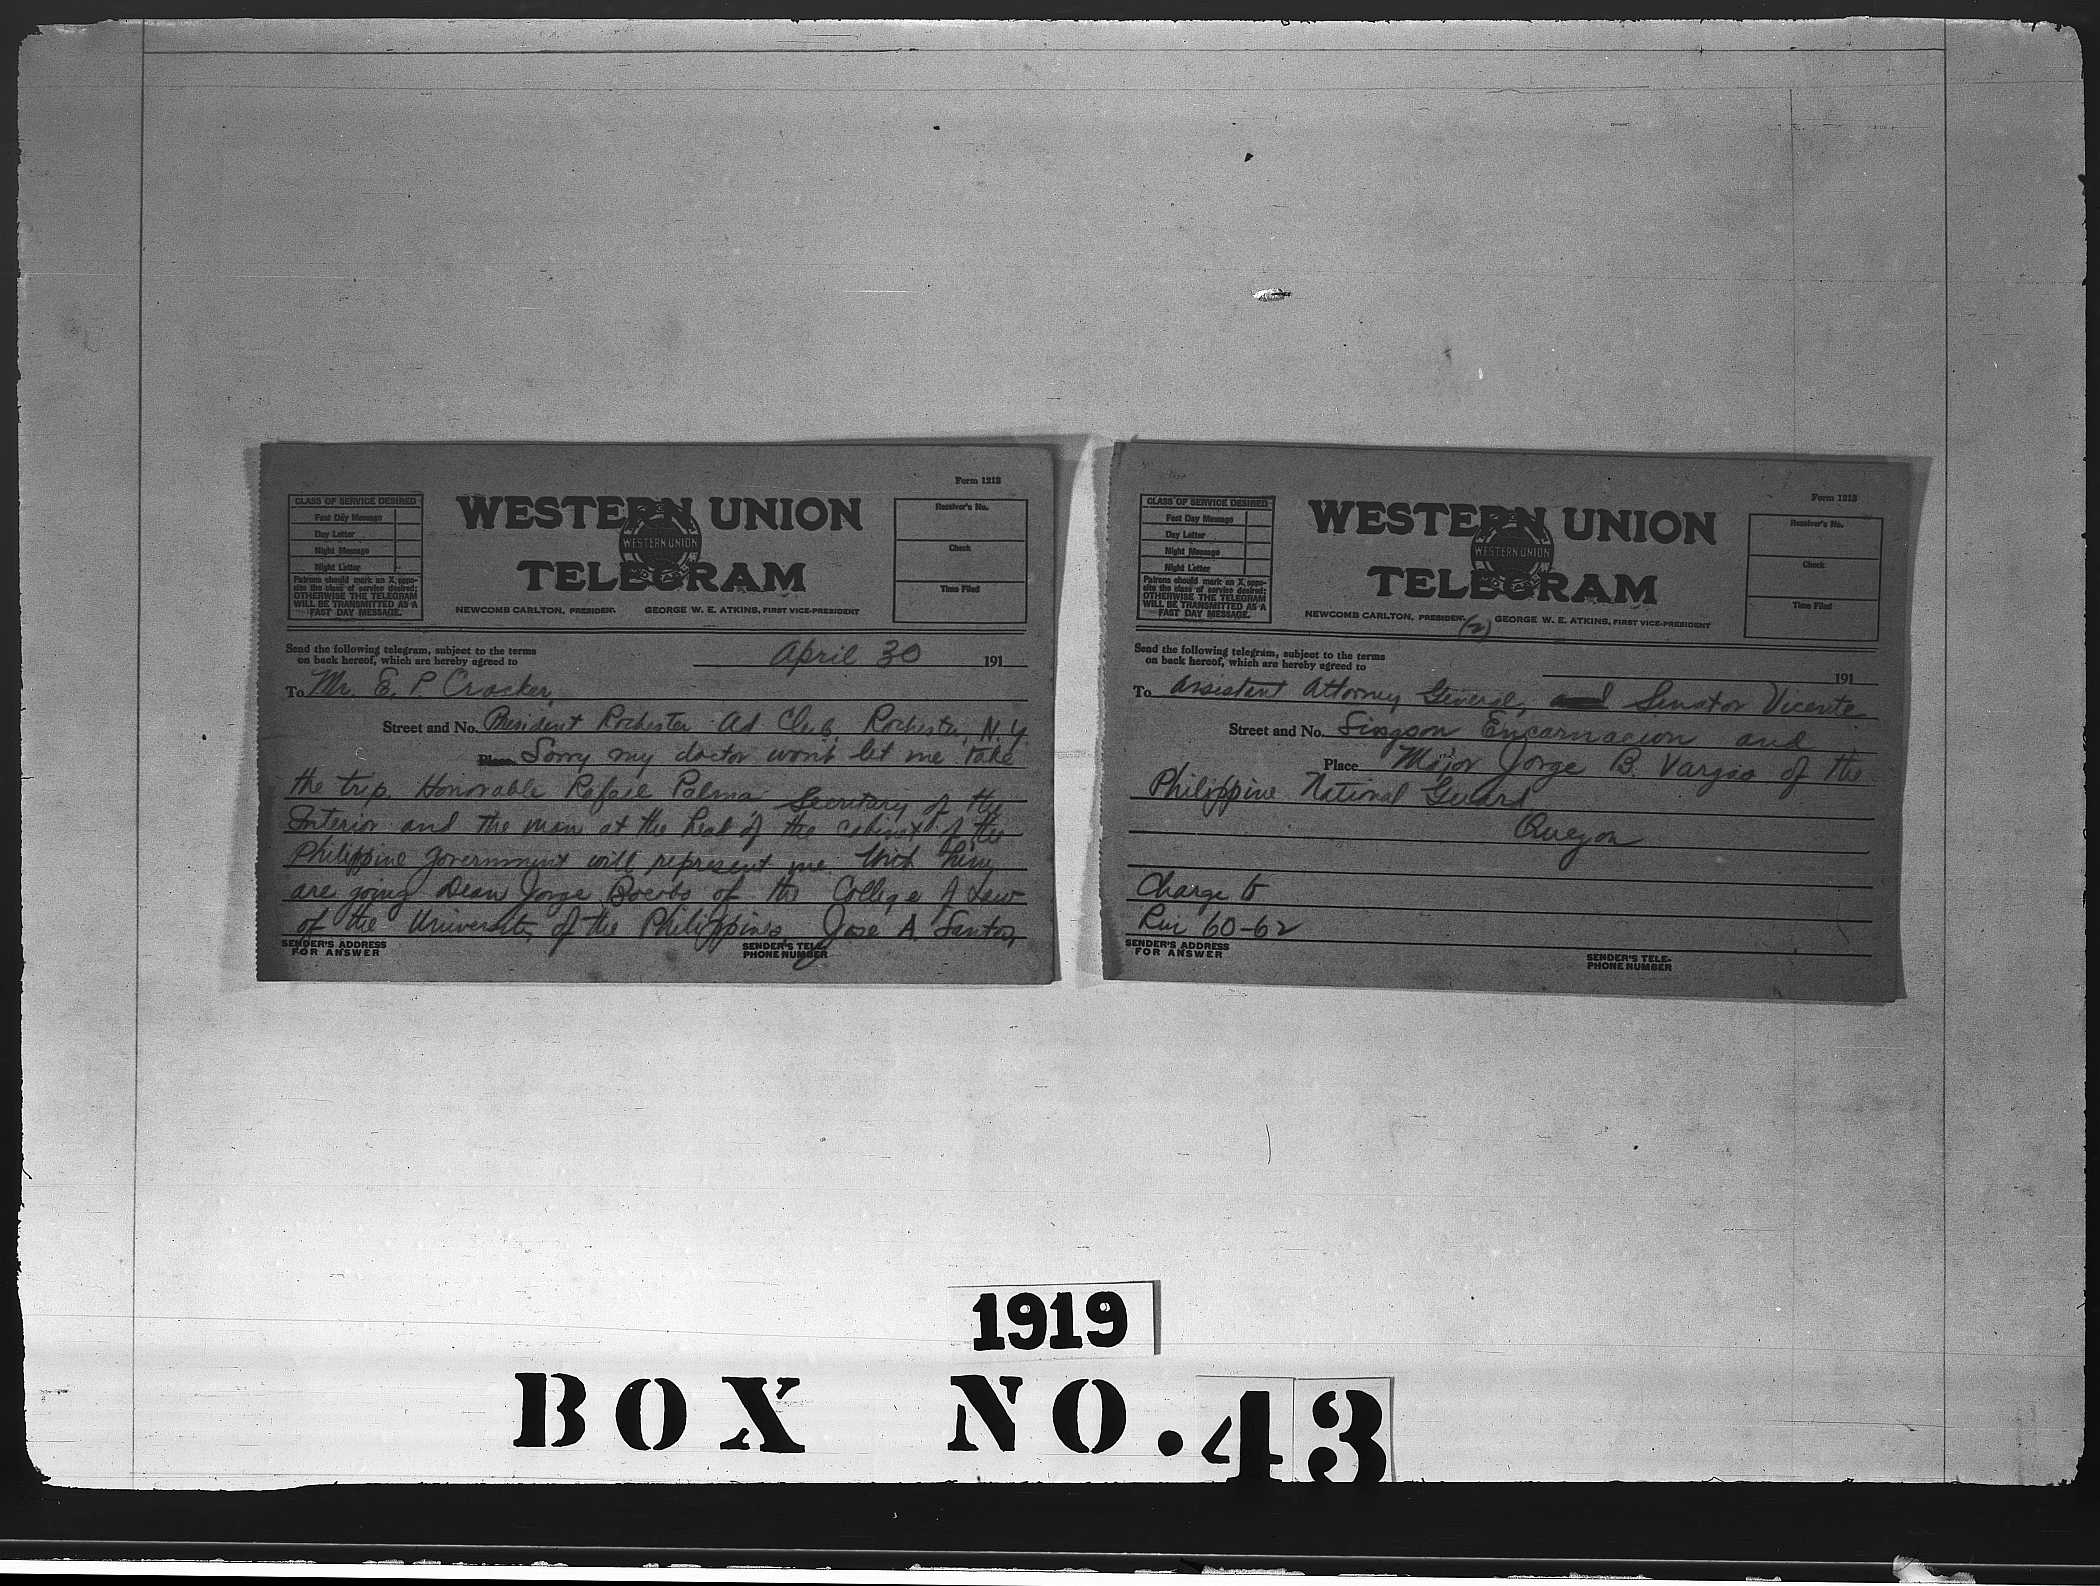 Form 1213
CLASS OF SERVICE DESIRED
Fast Day Message
Day Letter
Night Message
Night Letter
Patrons should mark an X oppo-
site the class of service desired;
OTHERWISE THE TELEGRAM
WILL BE TRANSMITTED AS A
FAST DAY MESSAGE.
WESTERN UNION
WESTERN UNION
TELEGRAM
NEWCOMB CARLTON, PRESIDENT
GEORGE W. E. ATKINS, FIRST VICE-PRESIDENT
Receiver's No.
Check
Time Filed
Send the following telegram, subject to the terms
on back hereof, which are hereby agreed to
April 30 191
To Mr. E. P. Crocker,
Street and No. President Rochester Ad Club, Rochester, N.Y.
Place Sorry my doctor won't let me take
the trip. Honorable Rafael Palma, Secretary of the
Interior and the man at the head of the cabinet of the
Philippine government will represent me. With him
are going Dean Jorge Bocobo of the College of Law
of the University of the Philippines, Jose A. Santos,
SENDER'S ADDRESS
FOR ANSWER
SENDER'S TELE-
PHONE NUMBER
Form 1213
CLASS OF SERVICE DESIRED
Fast Day Message
Day Letter
Night Message
Night Letter
Patrons should mark an X oppo-
site the class of service desired;
OTHERWISE THE TELEGRAM
WILL BE TRANSMITTED AS A
FAST DAY MESSAGE.
WESTERN UNION
WESTERN UNION
TELEGRAM
NEWCOMB CARLTON, PRESIDENT
(2)
GEORGE W. E. ATKINS, FIRST VICE-PRESIDENT
Receiver's No.
Check
Time Filed
Send the following telegram, subject to the terms
on back hereof, which are hereby agreed to
191
To Assistant Attorney General, and Senator Vicente
Street and No. Singson Encarnacion and
Place Major Jorge B. Vargas of the
Philippine National Guard
Quezon
Charge to
Rm 60-62
SENDER'S ADDRESS
FOR ANSWER
SENDER'S TELE-
PHONE NUMBER
1919
BOX NO. 43